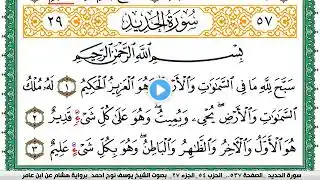 ٢٩ سُورَةُ الحَدِيدِ ٥٧
بِسْمِ اللَّهِ الرَّحْمَٰنِ الرَّحِيمِ
سَبَّحَ لِلَّهِ مَا فِي السَّمَٰوَٰتِ وَالْأَرْضِ وَهُوَ الْعَزِيزُ الْحَكِيمُ ١ لَهُ مُلْكُ
السَّمَٰوَٰتِ وَالْأَرْضِ يُحْيِۦ وَيُمِيتُ وَهُوَ عَلَىٰ كُلِّ شَيْءٍ قَدِيرٌ ٢
هُوَ الْأَوَّلُ وَالْآخِرُ وَالظَّٰهِرُ وَالْبَاطِنُ وَهُوَ بِكُلِّ شَيْءٍ عَلِيمٌ ٣
سورة الحديد . الصفحة ٥٣٧.. الحزب ٥٤ .الجزء ٢٧ . بصوت الشيخ يوسف نوح احمد برواية هشام عن ابن عامر